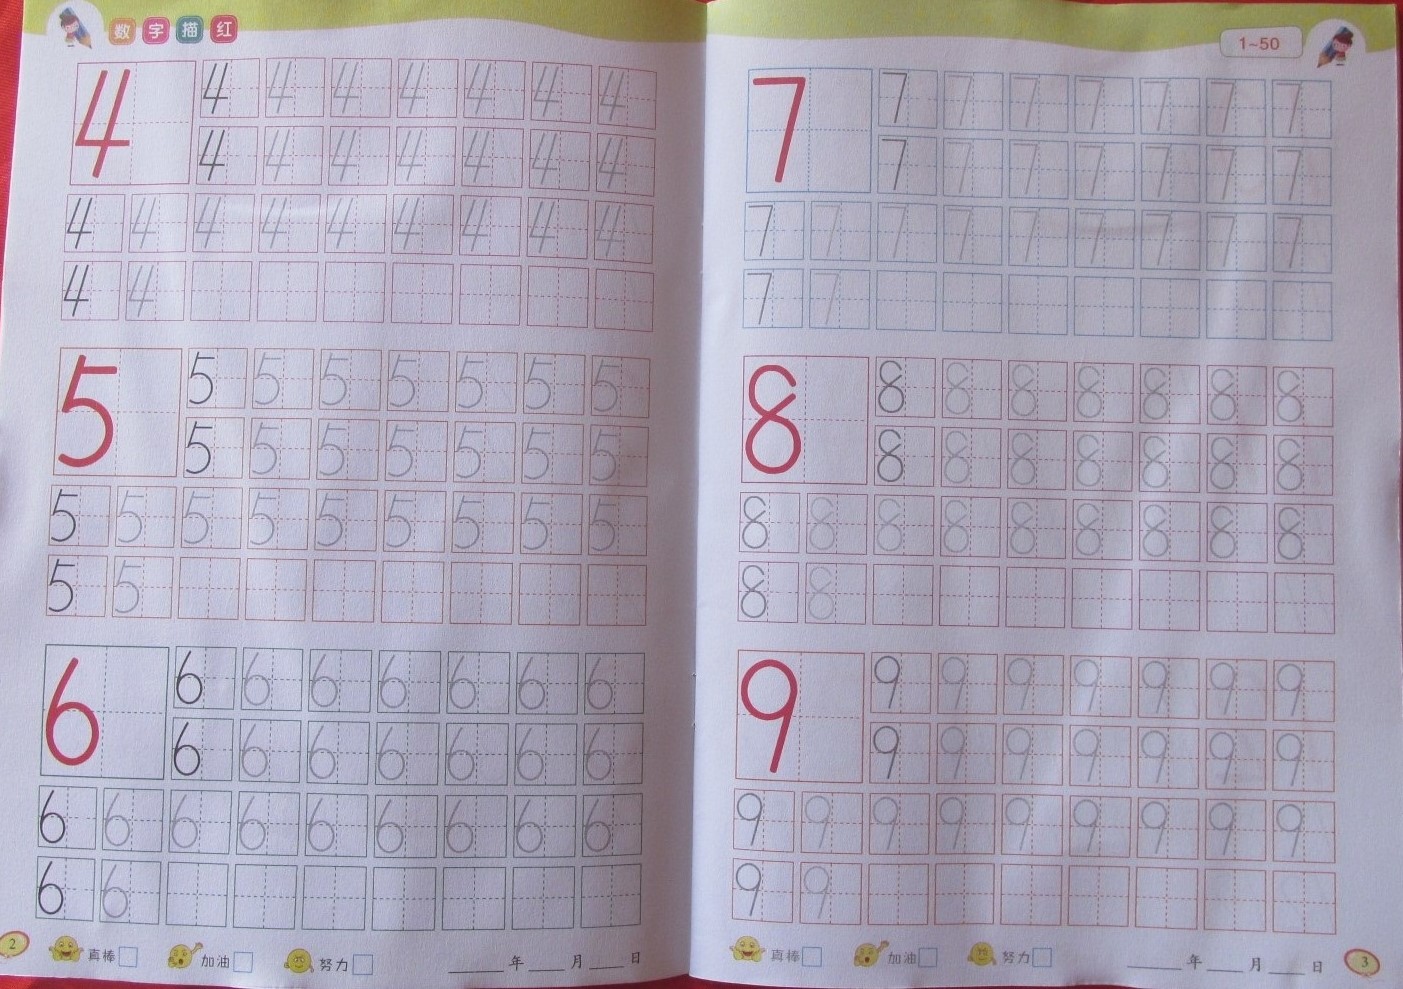 数字描红
4 4 4 4 4 4 4 4
4 4 4 4 4 4 4
4 4 4 4 4 4 4 4 4
4 4
5 5 5 5 5 5 5 5
5 5 5 5 5 5 5
5 5 5 5 5 5 5 5 5
5 5
6 6 6 6 6 6 6 6
6 6 6 6 6 6 6
6 6 6 6 6 6 6 6 6
6 6
2 真棒 加油 努力 年 月 日
1~50
7 7 7 7 7 7 7 7
7 7 7 7 7 7 7
7 7 7 7 7 7 7 7 7
7 7
8 8 8 8 8 8 8 8
8 8 8 8 8 8 8
8 8 8 8 8 8 8 8 8
8 8
9 9 9 9 9 9 9 9
9 9 9 9 9 9 9
9 9 9 9 9 9 9 9 9
9 9
真棒 加油 努力 年 月 日 3